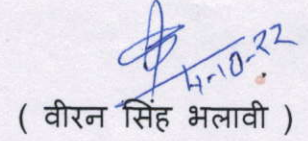 4-10-22
( वीरन सिंह भलावी )